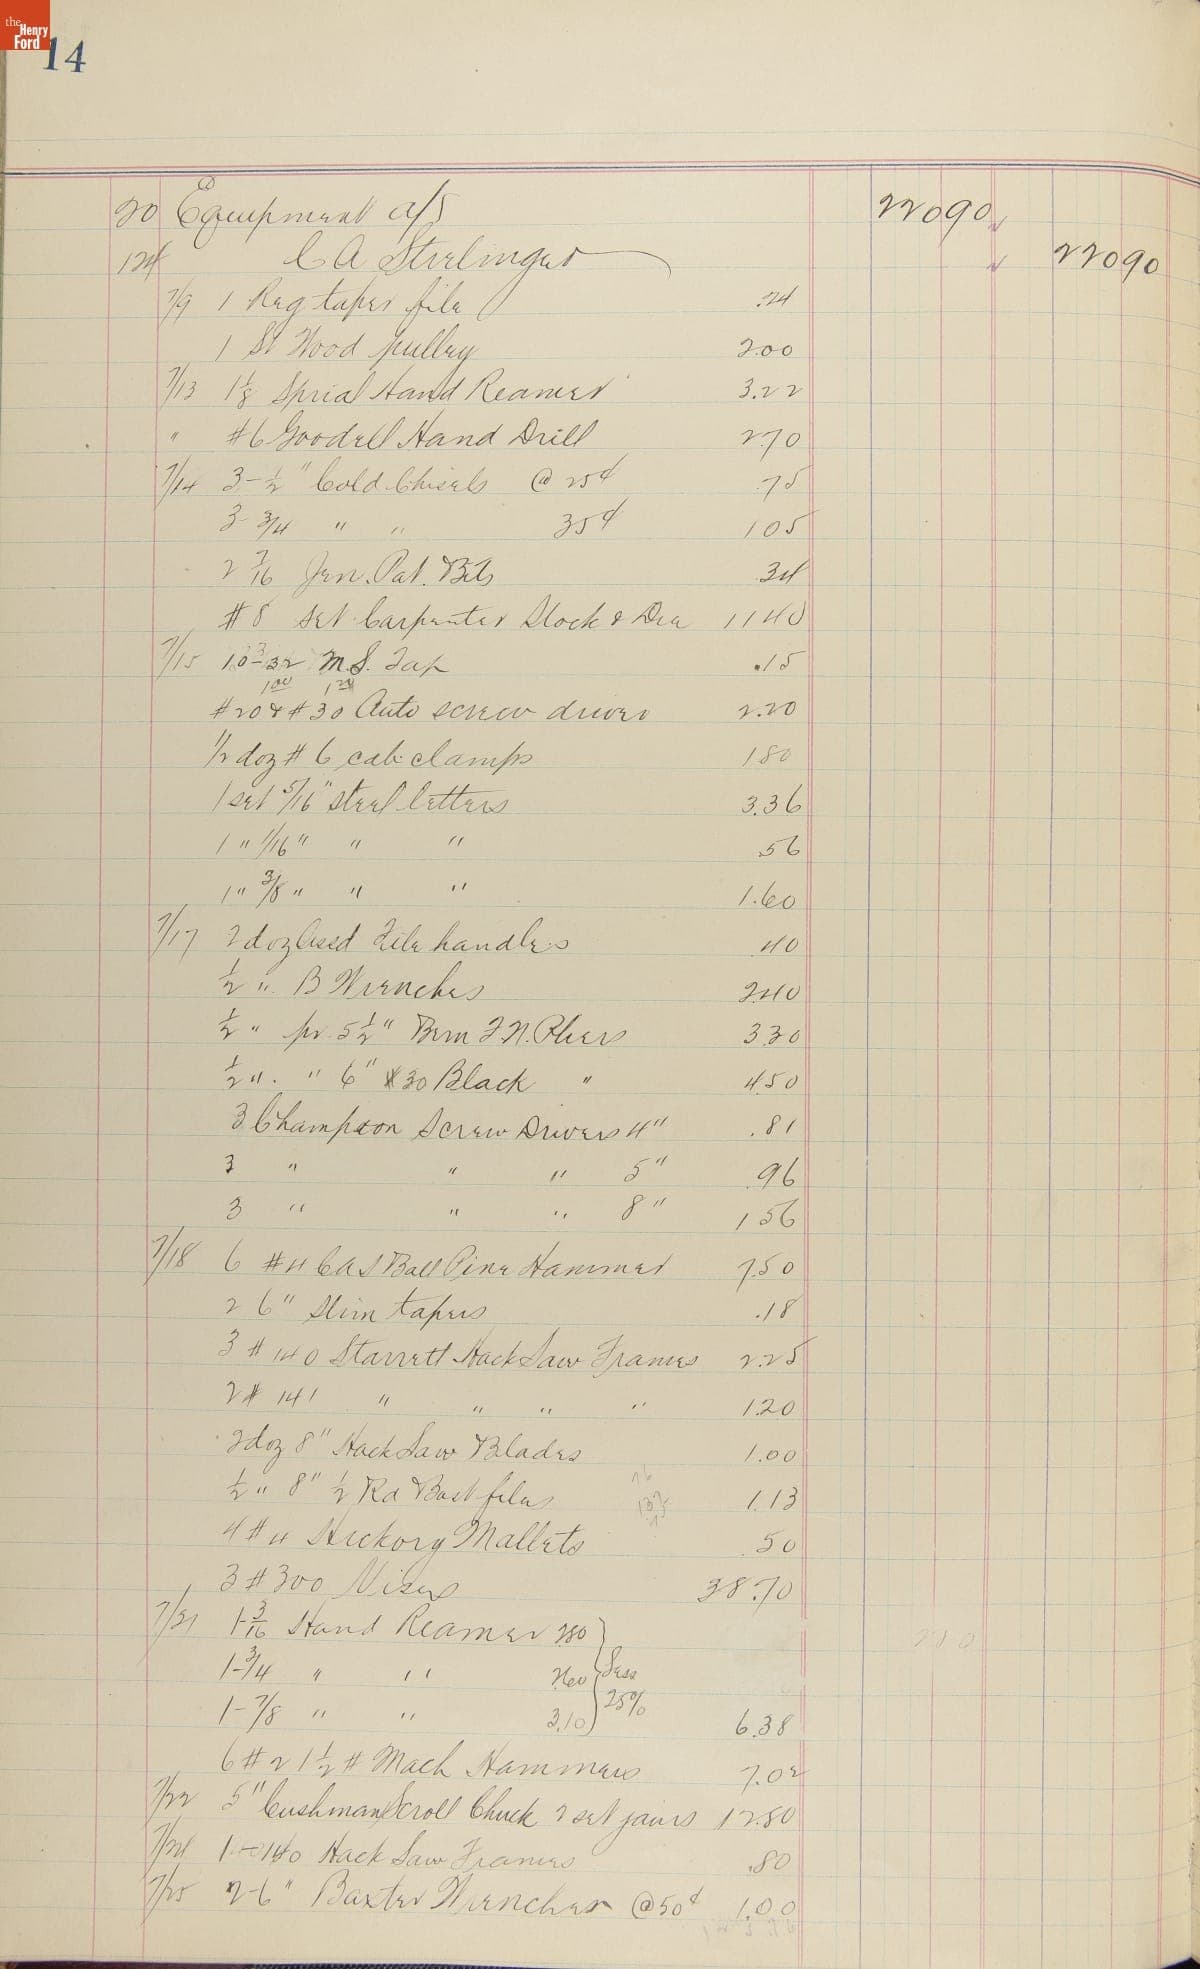 the Henry Ford
14
20 Equipment a/c 220 90
124 C A Strelinger 220 90
7/9 1 Reg taper file .24
1 St Wood pulley 2.00
7/13 1 1/8 Sprial Hand Reamer 3.22
" #6 Goodell Hand Drill 2.70
7/14 3-1/2" Cold Chisels @ 25¢ .75
3 3/4 " " 35¢ 1 05
2 7/16 Jen. Pat. Bits .34
#8 set Carpenter Stock & Die 11 40
7/15 10-32 M.S. Tap .15
1 00 1 20
#20 & #30 Auto screw driver 2.20
1/2 doz #6 cab clamps 1 80
1 set 5/16" steel letters 3.36
1 " 1/16" " " .56
1 " 3/8 " " " 1.60
7/17 2 doz Assd File handles .40
1/2 " B Wrenches 2.40
1/2 " pr. 5 1/2" Bern F.N. Pliers 3.30
1/2 " " 6" #30 Black " 4.50
3 Champion Screw Drivers 4" .81
3 " " " 5" .96
3 " " " 8" 1 56
7/18 6 #4 CAS Ball Pine Hammer 7.50
2 6" Slim tapers .18
3 #140 Starrett Hack Saw Frames 2.25
2 # 141 " " " " 1.20
2 doz 8" Hack Saw Blades 1.00
1/2 " 8" 1/2 Rd Bast files 1.13
4 #4 Hickory Mallets .50
3 #300 Vises 38.70
7/21 1-3/16 Hand Reamer 2.80
1-3/4 " " Less
1-7/8 " " 3.10 25% 6.38
6 #2 1 1/2 # Mach Hammers 7.02
7/22 5" Cushman Scroll Chuck 2 set jaws 12.80
7/24 1-140 Hack Saw Frames .80
7/25 2-6" Baxter Wrenches @ 50¢ 1.00